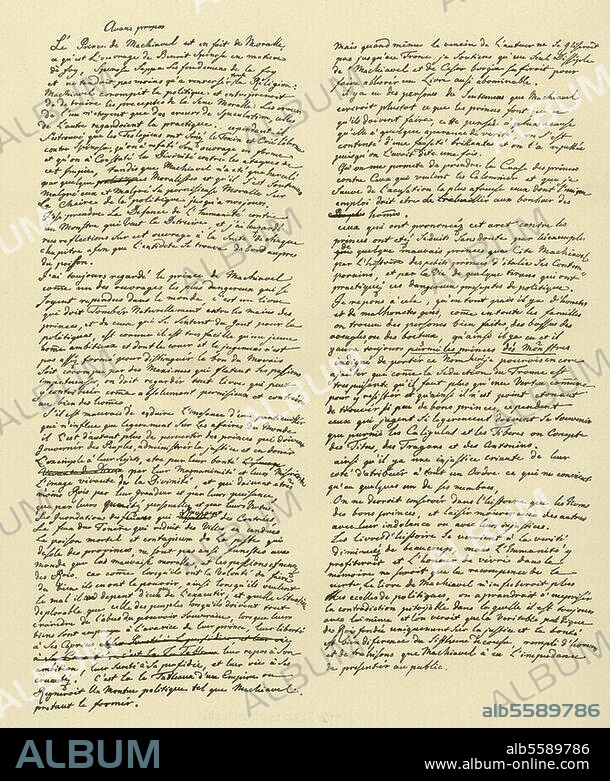 Avant propos
Le Prince de Machiavel est en fait de Moralle,
ce qu'est L'ouvrage de Spinosa en matiere
de foy, Spinosa Sappa les fondemens de la foy
et ne tendoit pas moins qu'a renverser la Religion;
Machiavel corrompit la politique et
de la Seine Moralle: Les erreurs
de l'un n'etoyent que des erreurs de Speculation, celles
de L'autre regardoient la practique. cependant il
S'est trouvé que les Theologiens ont
contre Spinosa, qu'on a refuté Son ouvrage en forme
et qu'on a Constaté la Divinité contre les ataques de
cet Impie, tandis que Machiavel n'a eté que harcelé
par quelques Moralistes et qu'il S'est Soutenu
Malgré eux et Malgré Sa pernissieuse Moralle Sur
la Chaire de la politique jusqu'a nos jours.
J'ose prendre La Defence de L'humanité contre
un Monstre qui Veut la Détruire, et j'ai hazardé
mes reflections Sur cet ouvrage a la Suite de chaque
chapitre afin que L'antidote Se trouva
du poisson.
J'ai toujours regardé le prince de Machiavel
comme un des ouvrages les plus dangereux qui Se
Soyent repandus dans le monde, C'est un Livre
qui doit Tomber Naturellement entre les mains des
princes, et de ceux qui Se Sentent du Gout pour la
politique, et comme il est tres facille qu'un jeune
home ambitieux et dont le coeur et le jugement
pas assez formé pour distinguer le bon du Mauvais
Soit corompu par des Maximes qui flatent Ses passions
on doit regarder tout livre qui peut
y contribuer, come absolument pernissieux et contraire
au bien des hommes.
S'il est mauvais de Seduire L'inosance d'un particulier
qui n'influe que legerement Sur les affaires du Monde
il L'est d'autant plus de pervertir des princes qui doivent
Gouverner des Peuples administrer la justice et en donner
L'exemple a leur Sujets,
par leur Magnanimité et leur Misericorde
L'image vivante de la Divinité, et qui doivent
moins Rois par leur Grandeur et par leur puissance
que par leurs Qualités personelles et par leurs Vertus.
Les Inondations des fleuves qui
Le feu du Tonere qui reduit des Villes en Cendres
Le poison mortel et contagieux de la peste qui
desole des provinces, ne sont pas aussi funestes au
monde que la mauvaise moralle et les passions
des Rois, car come lorsqu'ils ont la Volonté de faire
du bien ils en ont le pouvoir, aussi lorsqu'ils Veulent
le mal il depend d'eux de L'executer, et quelle situation
deplorable que celle des peuples lorsqu'ils doivent tout
craindre de L'abus du pouvoir Souverain, lorsque leurs
biens Sont en proye a L'avarice de leur prince, leur liberté
a Ses Caprices,
leur repos a Son
ambition, leur Sureté a Sa perfidie, et leur vie a Ses
C'est la le Tableau d'un Empire ou
regneroit Un Monstre politique tel que Machiavel
pretend le former.
Mais quand même le venain de L'auteur ne Se glisseroit
pas jusqu'au Trone, je Soutiens qu'un Seul Disciple
de Machiavel et de Cesar Borgia Suffiroit pour
faire abhorer un Livre aussi abominable.
il y a eu des persones du Sentiment que Machiavel
ecrivoit plustot ce que les princes font que ce
qu'ils doivent faire, cette pensée a plu a cause
qu'elle a quelque aparence de verité, on S'est
contenté d'une fausseté brillante et on l'a repettée
puisqu'on L'avoit dite une fois.
Qu'on me permette de prendre la Cause des princes
contre Ceux qui veulent les Calomnier et que je
Sauve de L'acusation la plus afreuse ceux dont l'unique
emploi doit etre de travailler au bonheur des
homes.
ceux qui ont prononcé cet arret contre les
princes ont eté Seduits Sans doute par l'exemple
de quelques mauvais princes que Cite Machiavel
par l'histoire des petits princes d'Italie Ses Contem-
porains, et par la vie de quelque tirans qui ont
practiqué ces dangereux preseptes de politique.
Je repons a cela, qu'en tout païs il y a d'honetes
et de malhonetes gens, come en toutes les familles
on trouve des persones bien faites des bossus des
aveugles ou des boiteux, qu'ainsi il y a eu et il
y aura toujours parmi les princes des Monstres
indigne de porter ce Nom. je pourois encore
ajouter que come la Seduction du Trone est
tres puisante, qu'il faut plus qu'une Vertu comune
pour y resister et qu'ainsi il n'est point etonnant
de trouver Si peu de bons princes. cependant
ceux qui jugent Si legerement doivent Se Souvenir
que parmis les Caligules et les Tiberes on Compte
des Titus, des Trajans et des Antonins,
ainsi qu'il y a une injustice criante de leur
part d'atribuer a tout un Ordre ce qui ne convient
qu'a quelques uns de Ses membres.
On ne devroit conserver dans l'histoire que les Noms
des bons princes, et laisser mourir ceux des autres
avec leur indolance ou avec leurs injustices.
Les Livres d'histoire Se veroient a la verité
diminués de beaucoup, mais L'humanité y
profiteroit et L'honneur de vivre dans la
memoire ne Seroit que la recompense de la
vertu. Le Livre de Machiavel n'infecteroit plus
les ecolles de politiques, on aprendroit a mepriser
la contradiction pitoyable dans la quelle il est toujours
avec lui même et l'on veroit que la Veritable politique
des Rois fondée uniquement Sur la justice et la bonté
est bien diferente du Sisteme rempli d'horreur
et de trahisons que Machiavel a eu L'impudance
de presenter au public.
ALBUM
alb5589786
ALBUM
alb5589786
www.album-online.com